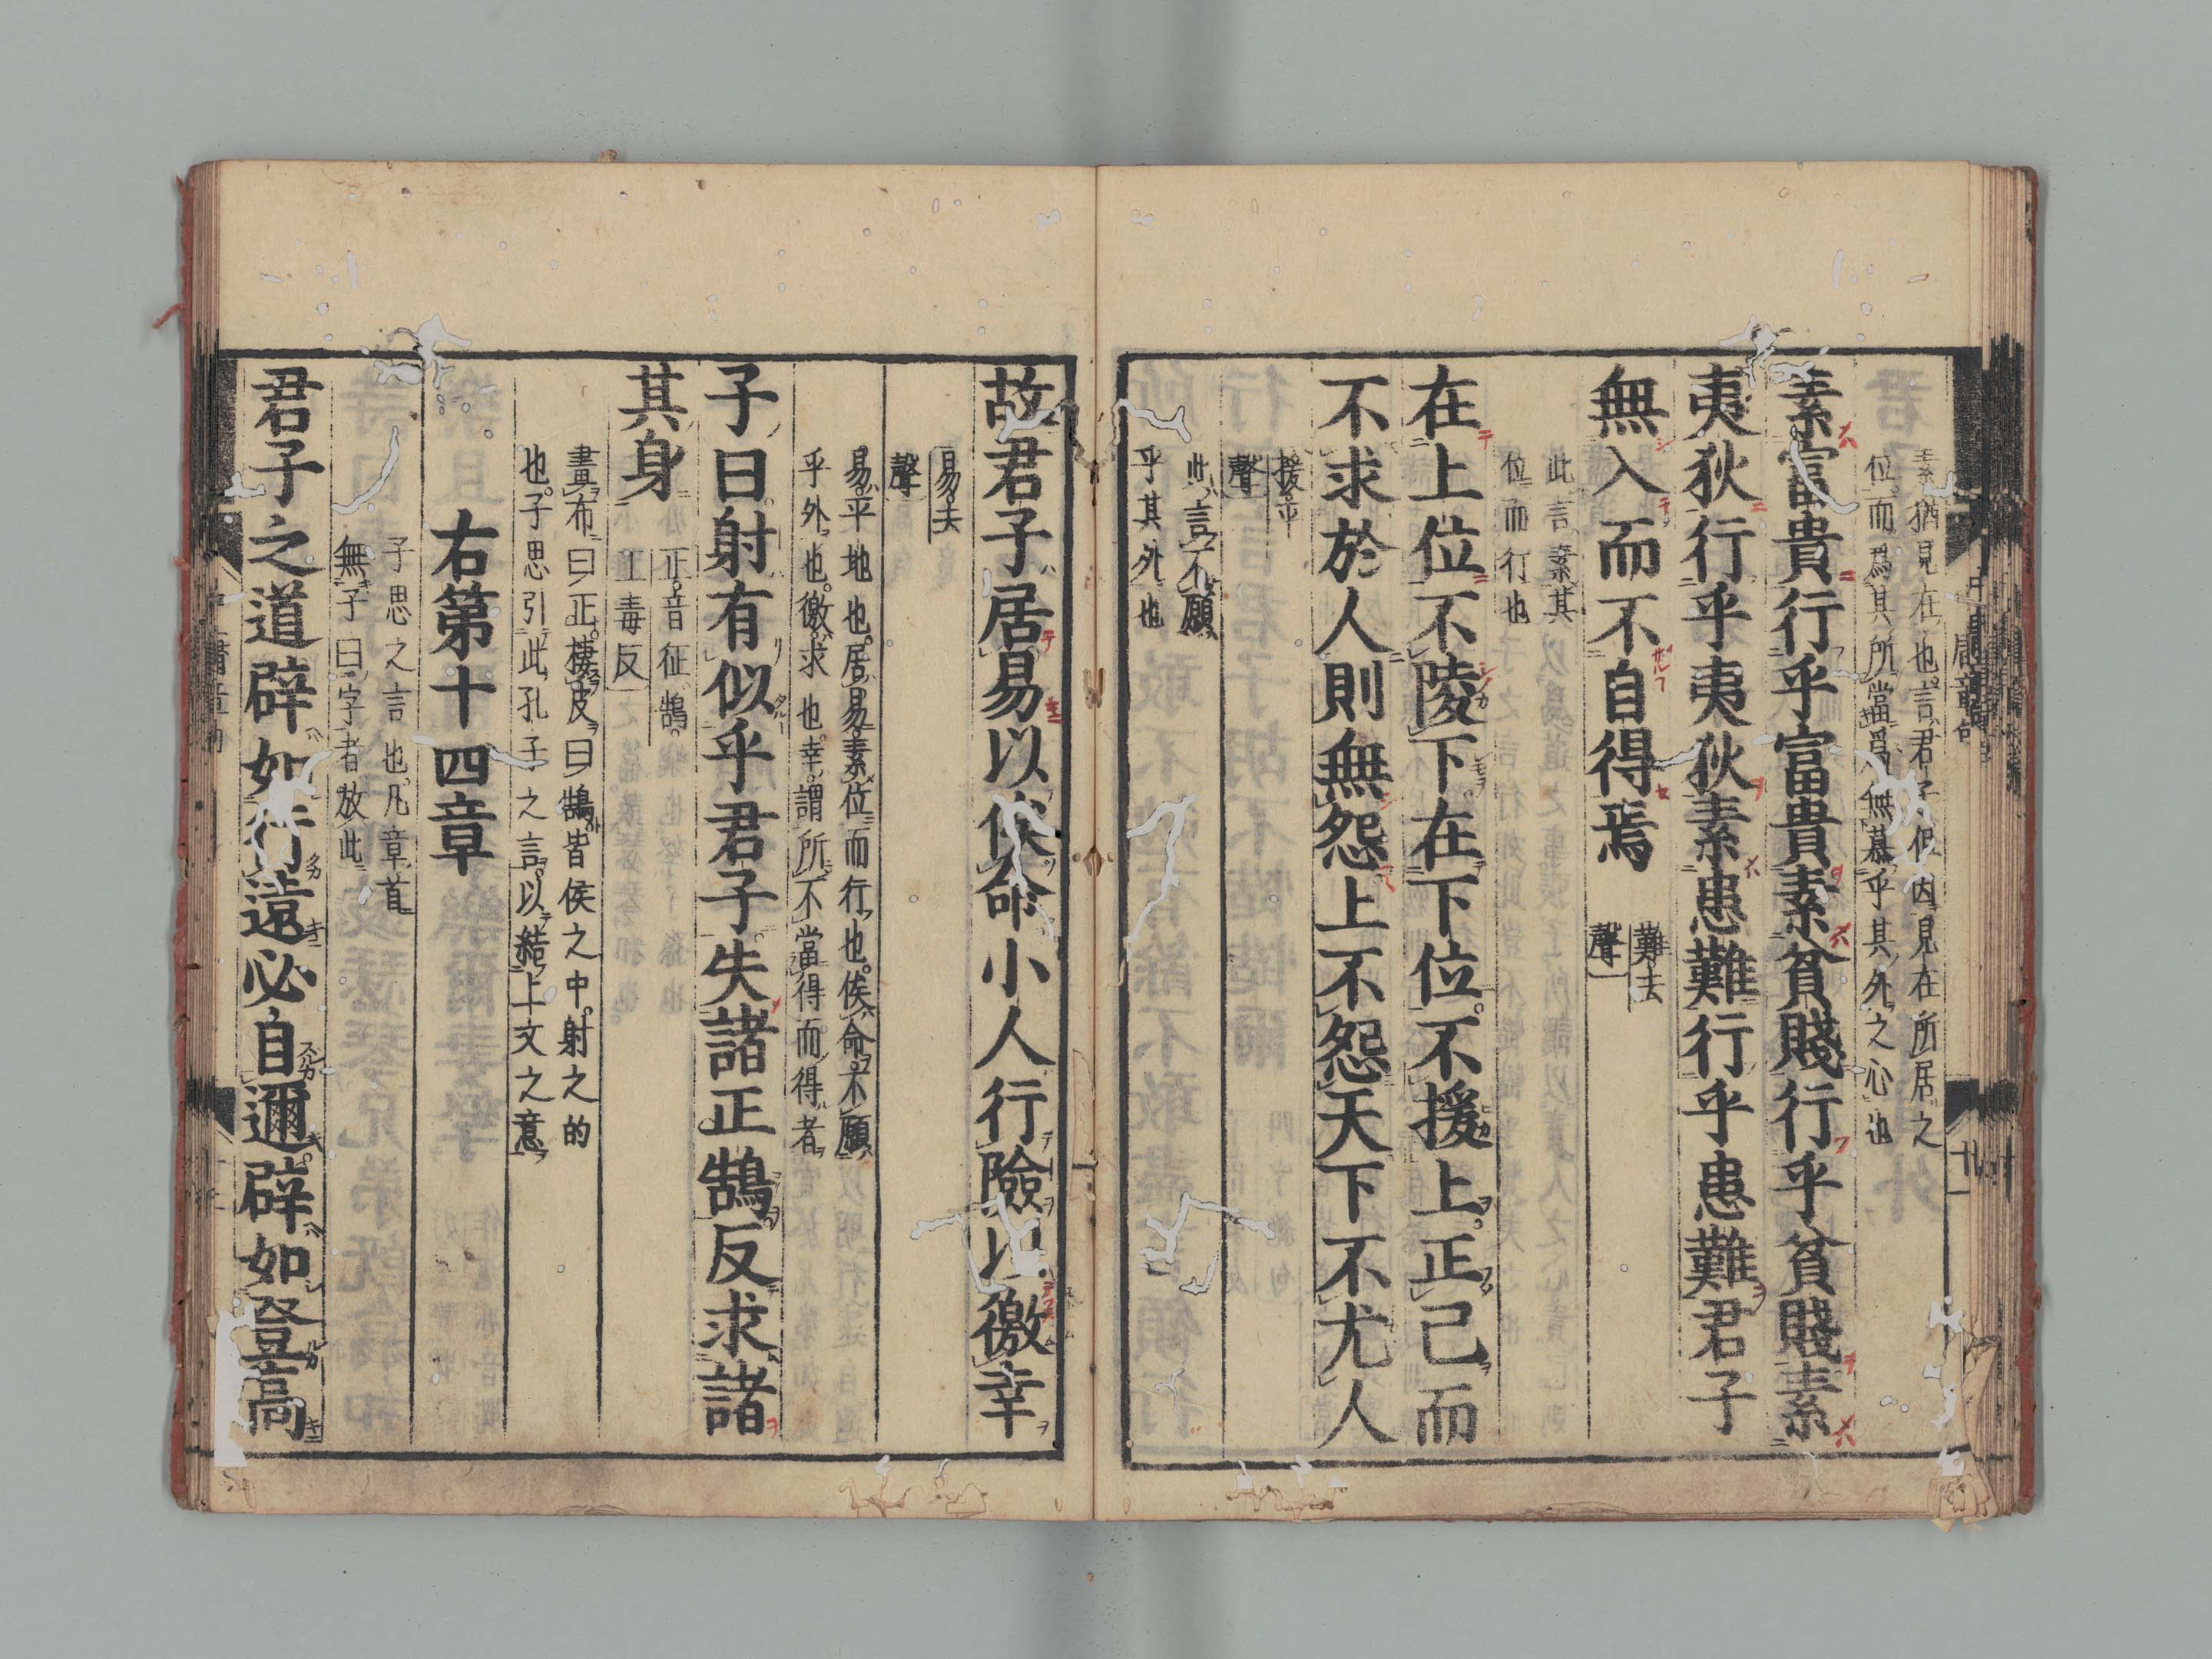 素猶見在也言君子但因見在所居之
位而爲其所當爲無慕乎其外之心也
素富貴行乎富貴素貧賤行乎貧賤素
夷狄行乎夷狄素患難行乎患難君子
無入而不自得焉
難去
聲
此言素其
位而行也
在上位不陵下在下位不援上正己而
不求於人則無怨上不怨天下不尤人
援平
聲
此言不願
乎其外也
故君子居易以俟命小人行險以徼幸
易去
聲
易平地也居易素位而行也俟命不願
乎外也徼求也幸謂所不當得而得者
子曰射有似乎君子失諸正鵠反求諸
其身
正音征鵠
工毒反
畫布曰正棲皮曰鵠皆侯之中射之的
也子思引此孔子之言以結上文之意
右第十四章
子思之言也凡章首
無子曰字者放此
君子之道辟如行遠必自邇辟如登高